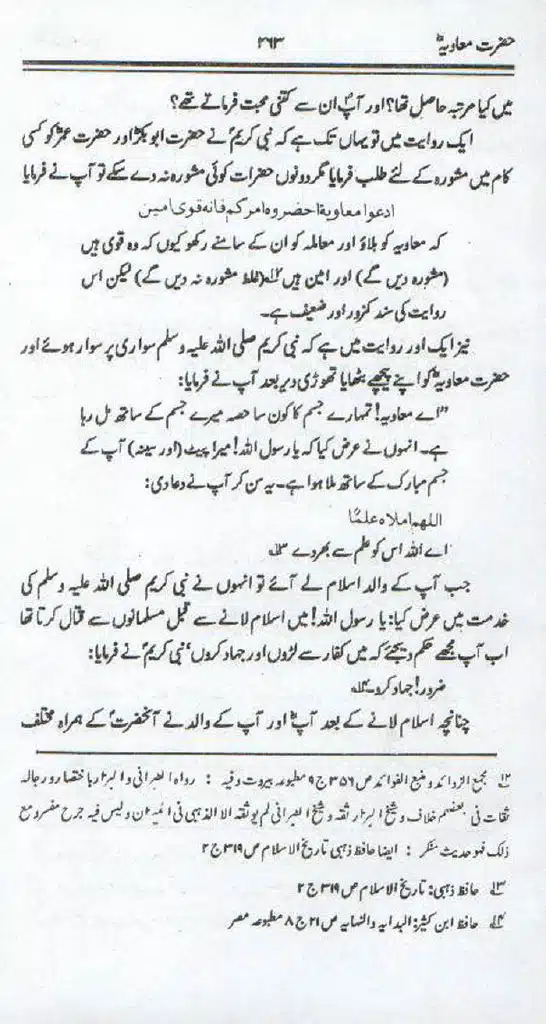 حضرت معاویہؓ ۲۶۳
میں کیا مرتبہ حاصل تھا؟ اور آپؐ ان سے کتنی محبت فرماتے تھے؟
ایک روایت میں تو یہاں تک ہے کہ نبی کریمؐ نے حضرت ابوبکرؓ اور حضرت عمرؓ کو کسی
کام میں مشورہ کے لئے طلب فرمایا مگر دونوں حضرات کوئی مشورہ نہ دے سکے تو آپ نے فرمایا
ادعوا معاویة احضروہ امرکم فانہ قوی امین
کہ معاویہ کو بلاؤ اور معاملہ کو ان کے سامنے رکھو کیوں کہ وہ قوی ہیں
(مشورہ دیں گے) اور امین ہیں ۱۲؎ (غلط مشورہ نہ دیں گے) لیکن اس
روایت کی سند کمزور اور ضعیف ہے۔
نیز ایک اور روایت میں ہے کہ نبی کریم صلی اللہ علیہ وسلم سواری پر سوار ہوئے اور
حضرت معاویہؓ کو اپنے پیچھے بٹھایا تھوڑی دیر بعد آپ نے فرمایا:
"اے معاویہ! تمہارے جسم کا کون سا حصہ میرے جسم کے ساتھ مل رہا
ہے۔ انہوں نے عرض کیا کہ یا رسول اللہ! میرا پیٹ (اور سینہ) آپ کے
جسم مبارک کے ساتھ ملا ہوا ہے۔ یہ سن کر آپ نے دعا دی:
اللهم املاه علمًا
اے اللہ اس کو علم سے بھر دے ۱۳؎
جب آپ کے والد اسلام لے آئے تو انہوں نے نبی کریم صلی اللہ علیہ وسلم کی
خدمت میں عرض کیا: یا رسول اللہ! میں اسلام لانے سے قبل مسلمانوں سے قتال کرتا تھا
اب آپ مجھے حکم دیجئے کہ میں کفار سے لڑوں اور جہاد کروں، نبی کریمؐ نے فرمایا:
ضرور! جہاد کرو ۱۴؎
چنانچہ اسلام لانے کے بعد آپؓ اور آپ کے والد نے آنحضرتؐ کے ہمراہ مختلف
۱۲؎ مجمع الزوائد و منبع الفوائد ص ۳۵۶ ج ۹ مطبوعہ بیروت وفیہ : رواہ الطبرانی والبزار باختصار ورجالہ
ثقات فی بعضہم خلاف وشیخ البزار ثقہ وشیخ الطبرانی لم یوثقہ الا الذہبی فی المیزان ولیس فیہ جرح مفسر ومع
ذلک فہو حدیث منکر : ایضا حافظ ذہبی تاریخ الاسلام ص ۳۱۹ ج ۲
۱۳؎ حافظ ذہبی: تاریخ الاسلام ص ۳۱۹ ج ۲
۱۴؎ حافظ ابن کثیر: البدایہ والنہایہ ص ۲۱ ج ۸ مطبوعہ مصر